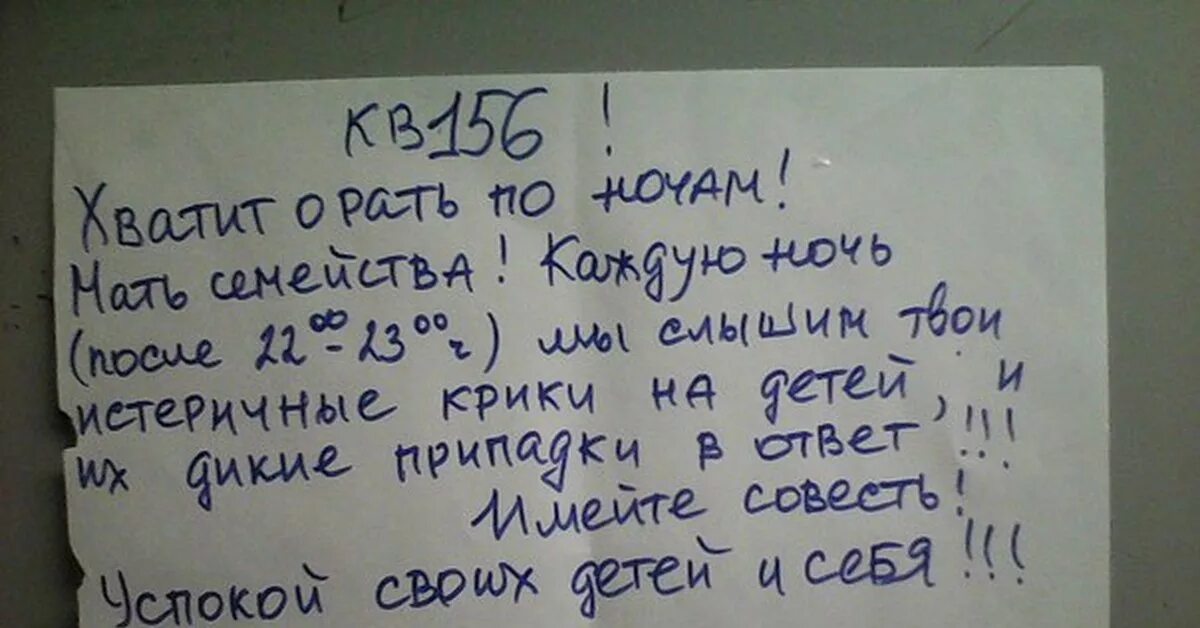 КВ156 !
Хватит орать по ночам!
Мать семейства! Каждую ночь
(после 22⁰⁰-23⁰⁰ч) мы слышим твои
истеричные крики на детей, и
их дикие припадки в ответ!!!
Имейте совесть!
Успокой своих детей и себя!!!